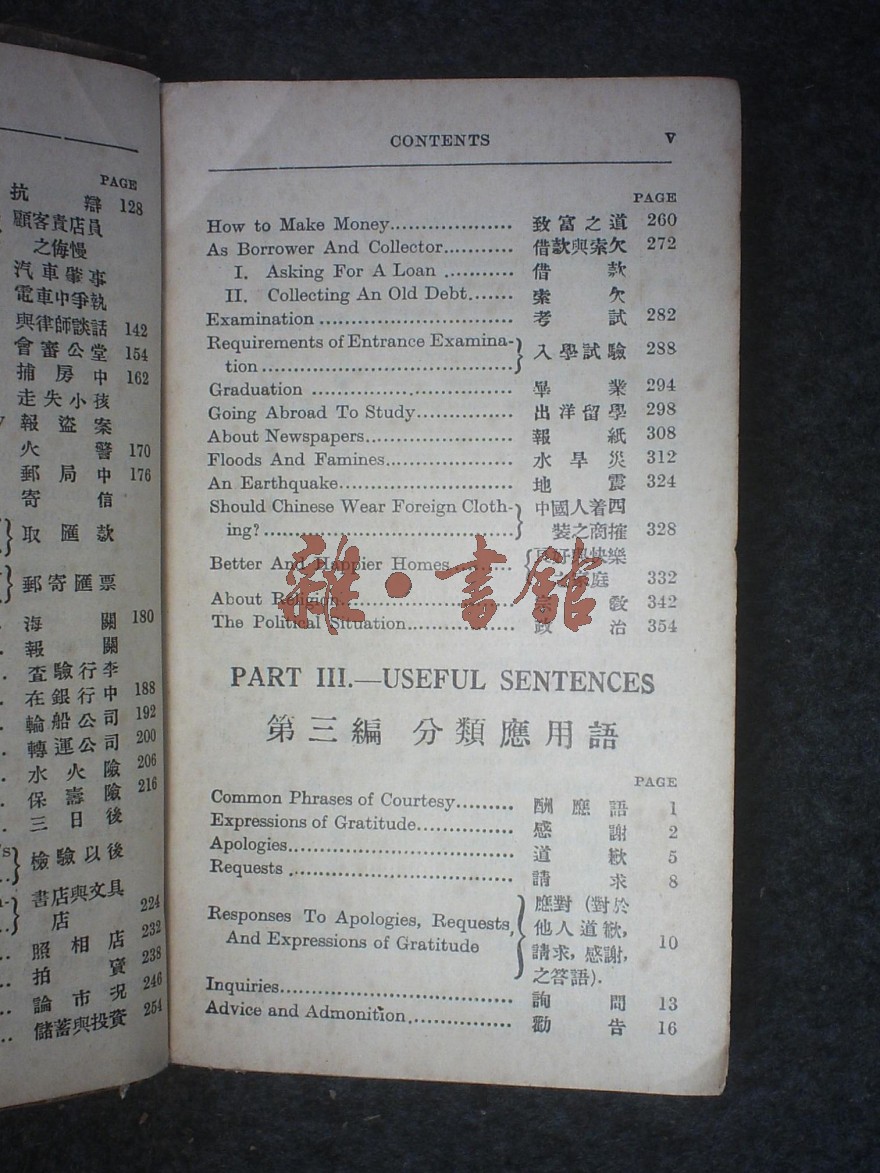 PAGE
抗辯 128
顧客責店員
之侮慢
汽車肇事
電車中爭執
與律師談話 142
會審公堂 154
捕房中 162
走失小孩
報盜案
火警 170
郵局中 176
寄信
取匯款
郵寄匯票
海關 180
報關
查驗行李
在銀行中 188
輪船公司 192
轉運公司 200
水火險 206
保壽險 216
三日後
檢驗以後
書店與文具
店 224
照相店 232
拍賣 238
論市況 246
儲蓄與投資 254
CONTENTS V
PAGE
How to Make Money.................... 致富之道 260
As Borrower And Collector........... 借款與索欠 272
I. Asking For A Loan ........... 借款
II. Collecting An Old Debt....... 索欠
Examination ................................ 考試 282
Requirements of Entrance Examina-
tion ........................................ } 入學試驗 288
Graduation ................................. 畢業 294
Going Abroad To Study................ 出洋留學 298
About Newspapers........................ 報紙 308
Floods And Famines..................... 水旱災 312
An Earthquake............................. 地震 324
Should Chinese Wear Foreign Cloth- } 中國人着西
ing?.......................................... 裝之商搉 328
Better And Happier Homes.......... { 良好與快樂
家庭 332
About Religion............................ 宗敎 342
The Political Situation.................. 政治 354
雜·書館
PART III.—USEFUL SENTENCES
第三編 分類應用語
PAGE
Common Phrases of Courtesy.......... 酬應語 1
Expressions of Gratitude................ 感謝 2
Apologies.................................... 道歉 5
Requests .................................... 請求 8
Responses To Apologies, Requests,
And Expressions of Gratitude } 應對 (對於
他人道歉,
請求,感謝,
之答語). 10
Inquiries..................................... 詢問 13
Advice and Admonition................. 勸告 16